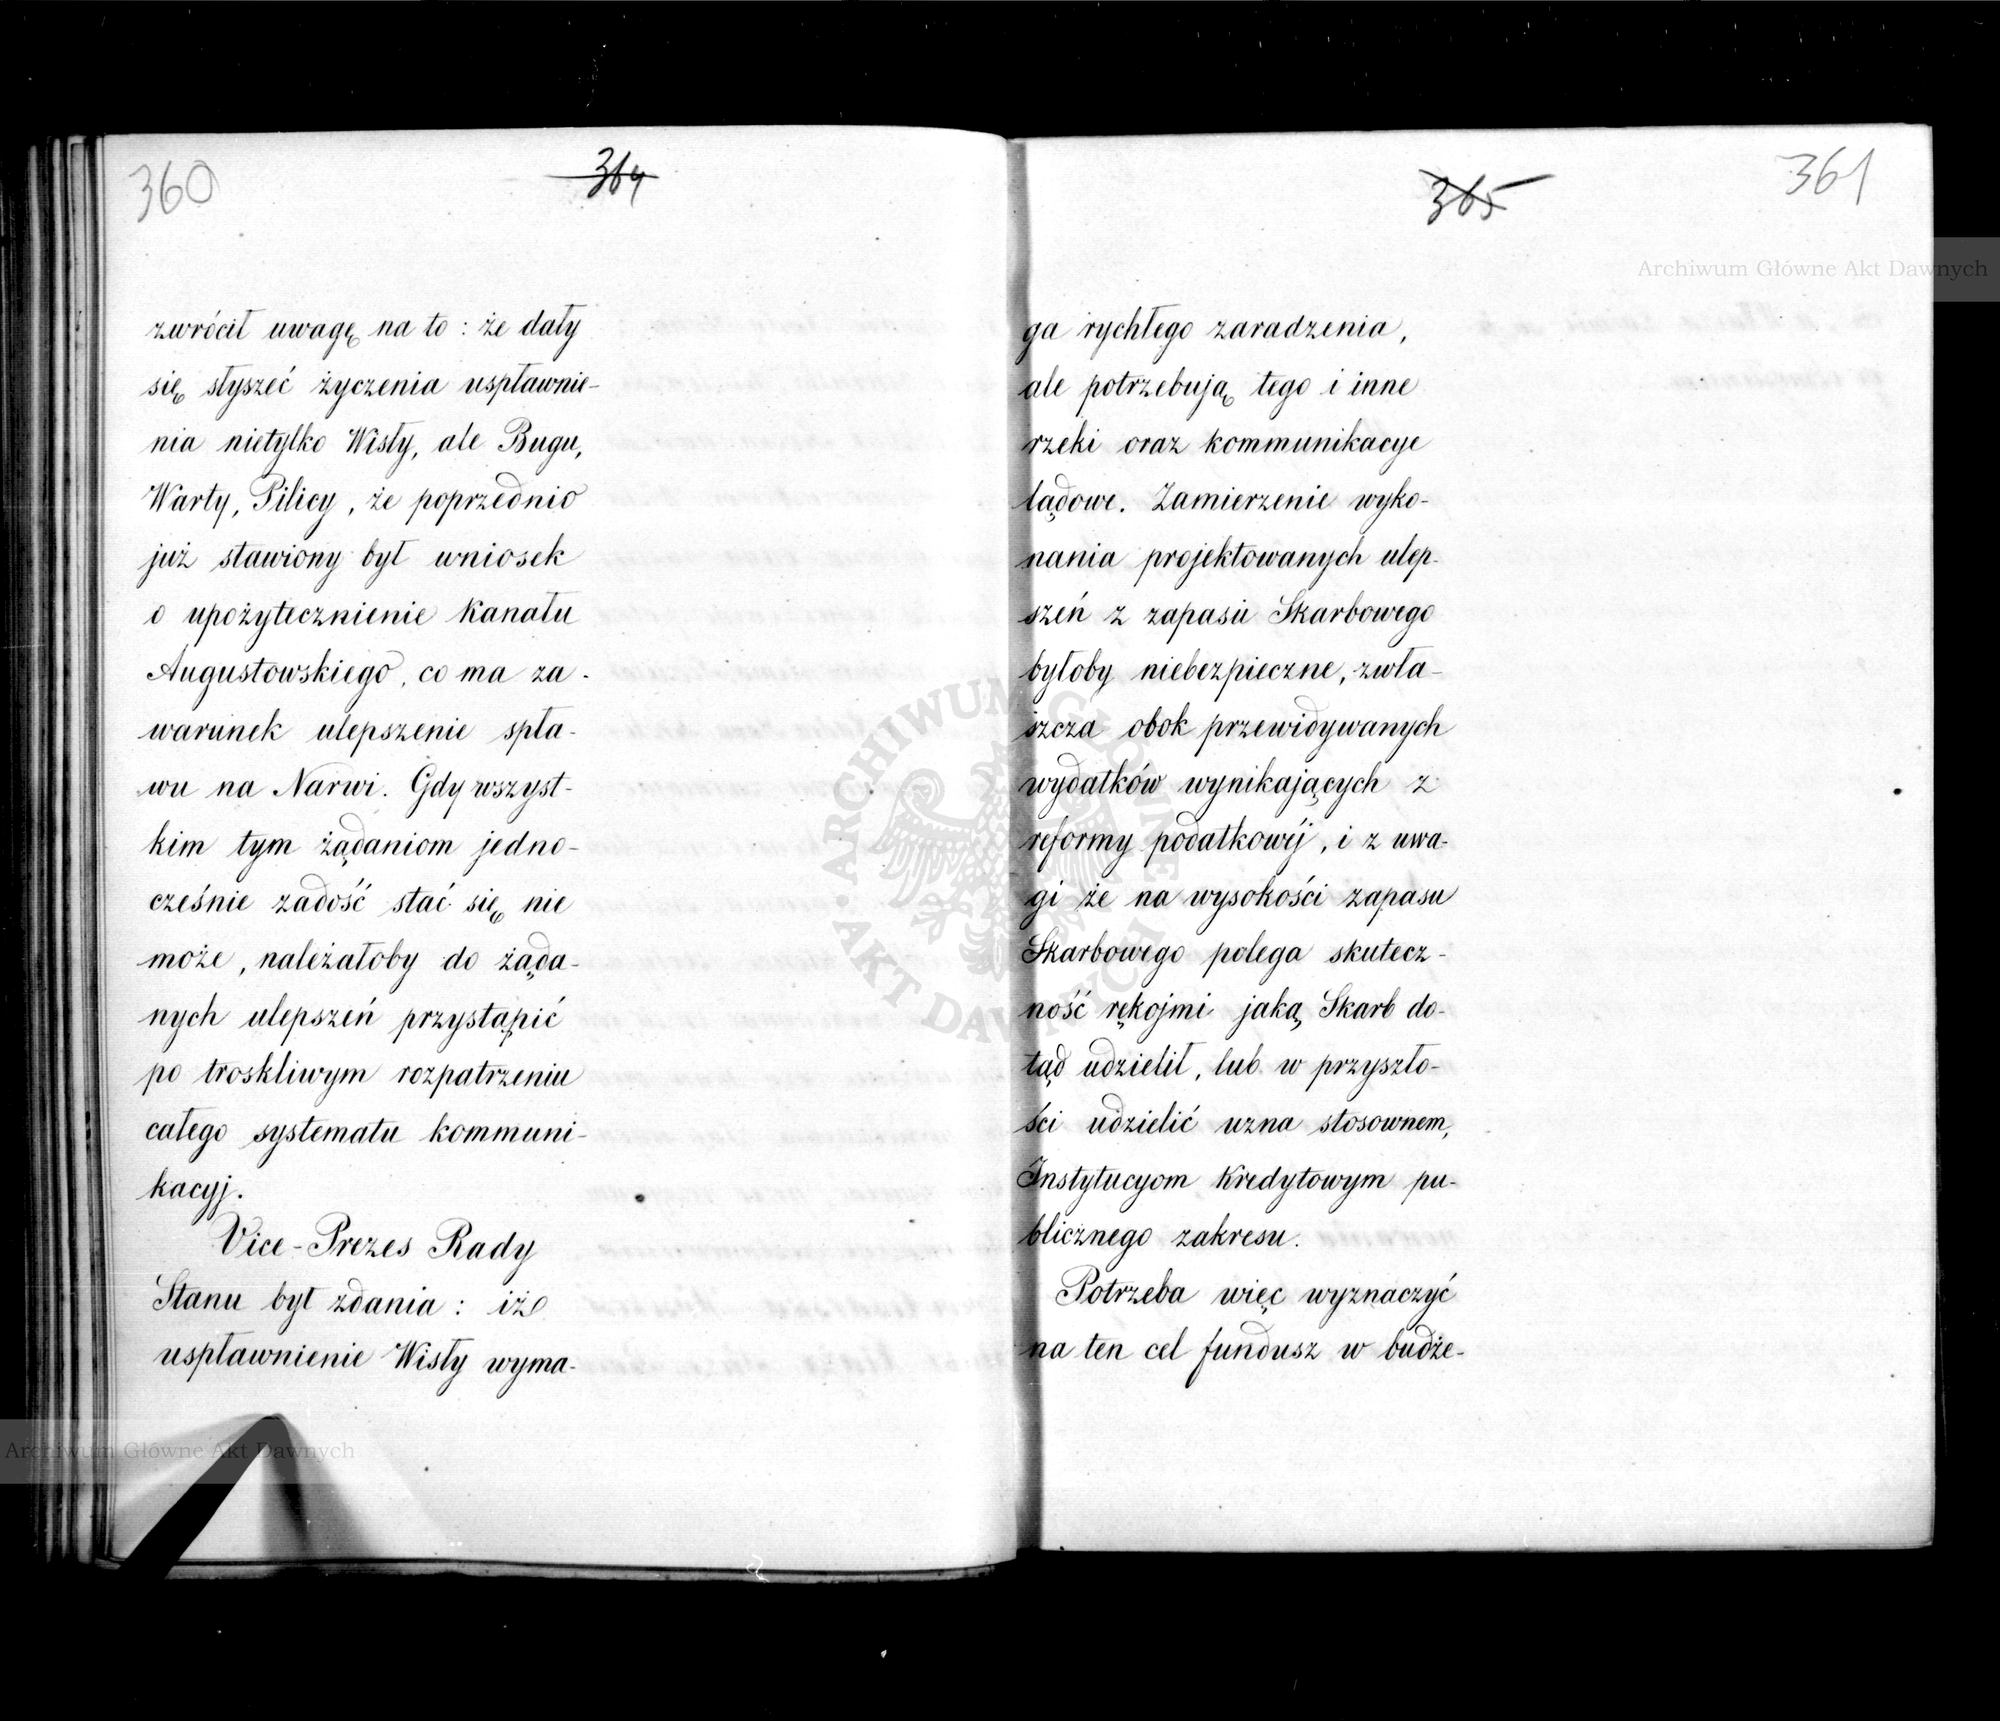 360
364
zwrócił uwagę na to: że dały
się słyszeć życzenia uspławnie-
nia nietylko Wisły, ale Bugu,
Warty, Pilicy, że poprzednio
już stawiony był wniosek
o upożytecznienie Kanału
Augustowskiego, co ma za-
warunek ulepszenie spła-
wu na Narwi. Gdy wszyst-
kim tym żądaniom jedno-
cześnie zadość stać się nie
może, należałoby do żąda-
nych ulepszeń przystąpić
po troskliwym rozpatrzeniu
całego systematu kommuni-
kacyj.
Vice-Prezes Rady
Stanu był zdania: iż
uspławnienie Wisły wyma-
365
361
ga rychłego zaradzenia,
ale potrzebują tego i inne
rzeki oraz kommunikacye
lądowe. Zamierzenie wyko-
nania projektowanych ulep-
szeń z zapasu Skarbowego
byłoby niebezpieczne, zwła-
szcza obok przewidywanych
wydatków wynikających z
reformy podatkowéj, i z uwa-
gi że na wysokości zapasu
Skarbowego polega skutecz-
ność rękojmi jaką Skarb do-
tąd udzielił, lub w przyszło-
ści udzielić uzna stosownem,
Instytucyom Kredytowym pu-
blicznego zakresu.
Potrzeba więc wyznaczyć
na ten cel fundusz w budże-
Archiwum Główne Akt Dawnych
ARCHIWUM GŁÓWNE AKT DAWNYCH
Archiwum Główne Akt Dawnych